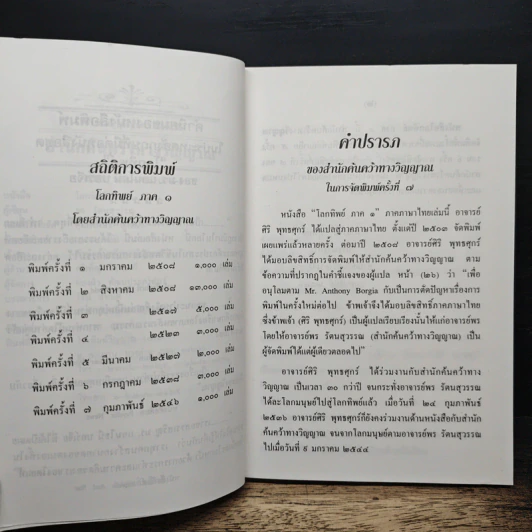 สถิติการพิมพ์
โลกทิพย์ ภาค ๑
โดยสำนักค้นคว้าทางวิญญาณ
พิมพ์ครั้งที่ ๑ มกราคม ๒๕๐๘ ๑,๐๐๐ เล่ม
พิมพ์ครั้งที่ ๒ สิงหาคม ๒๕๐๘ ๑๓,๐๐๐ เล่ม
พิมพ์ครั้งที่ ๓ ๒๕๑๗ ๕,๐๐๐ เล่ม
พิมพ์ครั้งที่ ๔ ๒๕๒๓ ๓,๐๐๐ เล่ม
พิมพ์ครั้งที่ ๕ มีนาคม ๒๕๒๗ ๒,๐๐๐ เล่ม
พิมพ์ครั้งที่ ๖ กรกฎาคม ๒๕๓๘ ๓,๐๐๐ เล่ม
พิมพ์ครั้งที่ ๗ กุมภาพันธ์ ๒๕๔๖ ๑,๐๐๐ เล่ม
คำปรารภ
ของสำนักค้นคว้าทางวิญญาณ
ในการจัดพิมพ์ครั้งที่ ๗
หนังสือ “โลกทิพย์ ภาค ๑” ภาคภาษาไทยเล่มนี้ อาจารย์
ศิริ พุทธศุกร์ ได้แปลสู่ภาคภาษาไทย ตั้งแต่ปี ๒๕๐๓ จัดพิมพ์
เผยแพร่แล้วหลายครั้ง ต่อมาปี ๒๕๐๘ อาจารย์ศิริ พุทธศุกร์
ได้มอบลิขสิทธิ์การจัดพิมพ์ให้สำนักค้นคว้าทางวิญญาณ ตาม
ข้อความที่ปรากฏในคำชี้แจงของผู้แปล หน้า (๒๖) ว่า “เพื่อ
อนุโลมตาม Mr. Anthony Borgia กับเป็นการตัดปัญหาเรื่องการ
พิมพ์ในครั้งใหม่ต่อไป ข้าพเจ้าจึงได้มอบลิขสิทธิ์ภาคภาษาไทย
ซึ่งข้าพเจ้า (ศิริ พุทธศุกร์) เป็นผู้แปลเรียบเรียงนั้นให้แก่อาจารย์พร
โดยให้อาจารย์พร รัตนสุวรรณ (สำนักค้นคว้าทางวิญญาณ) เป็น
ผู้จัดพิมพ์ได้แต่ผู้เดียวตลอดไป”
อาจารย์ศิริ พุทธศุกร์ ได้ร่วมงานกับสำนักค้นคว้าทาง
วิญญาณ เป็นเวลา ๓๐ กว่าปี จนกระทั่งอาจารย์พร รัตนสุวรรณ
ได้ละโลกมนุษย์ไปสู่โลกทิพย์แล้ว เมื่อวันที่ ๒๔ กุมภาพันธ์
๒๕๓๖ อาจารย์ศิริ พุทธศุกร์ก็ยังคงร่วมงานด้านหนังสือกับสำนัก
ค้นคว้าทางวิญญาณ จนจากโลกมนุษย์ตามอาจารย์พร รัตนสุวรรณ
ไปเมื่อวันที่ ๙ มกราคม ๒๕๔๔